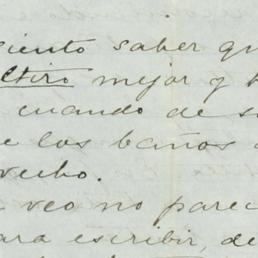 siento saber qu
ltiro mejor y
cuando de s
e los baños
vecho.
veo no parec
ara escribir, de